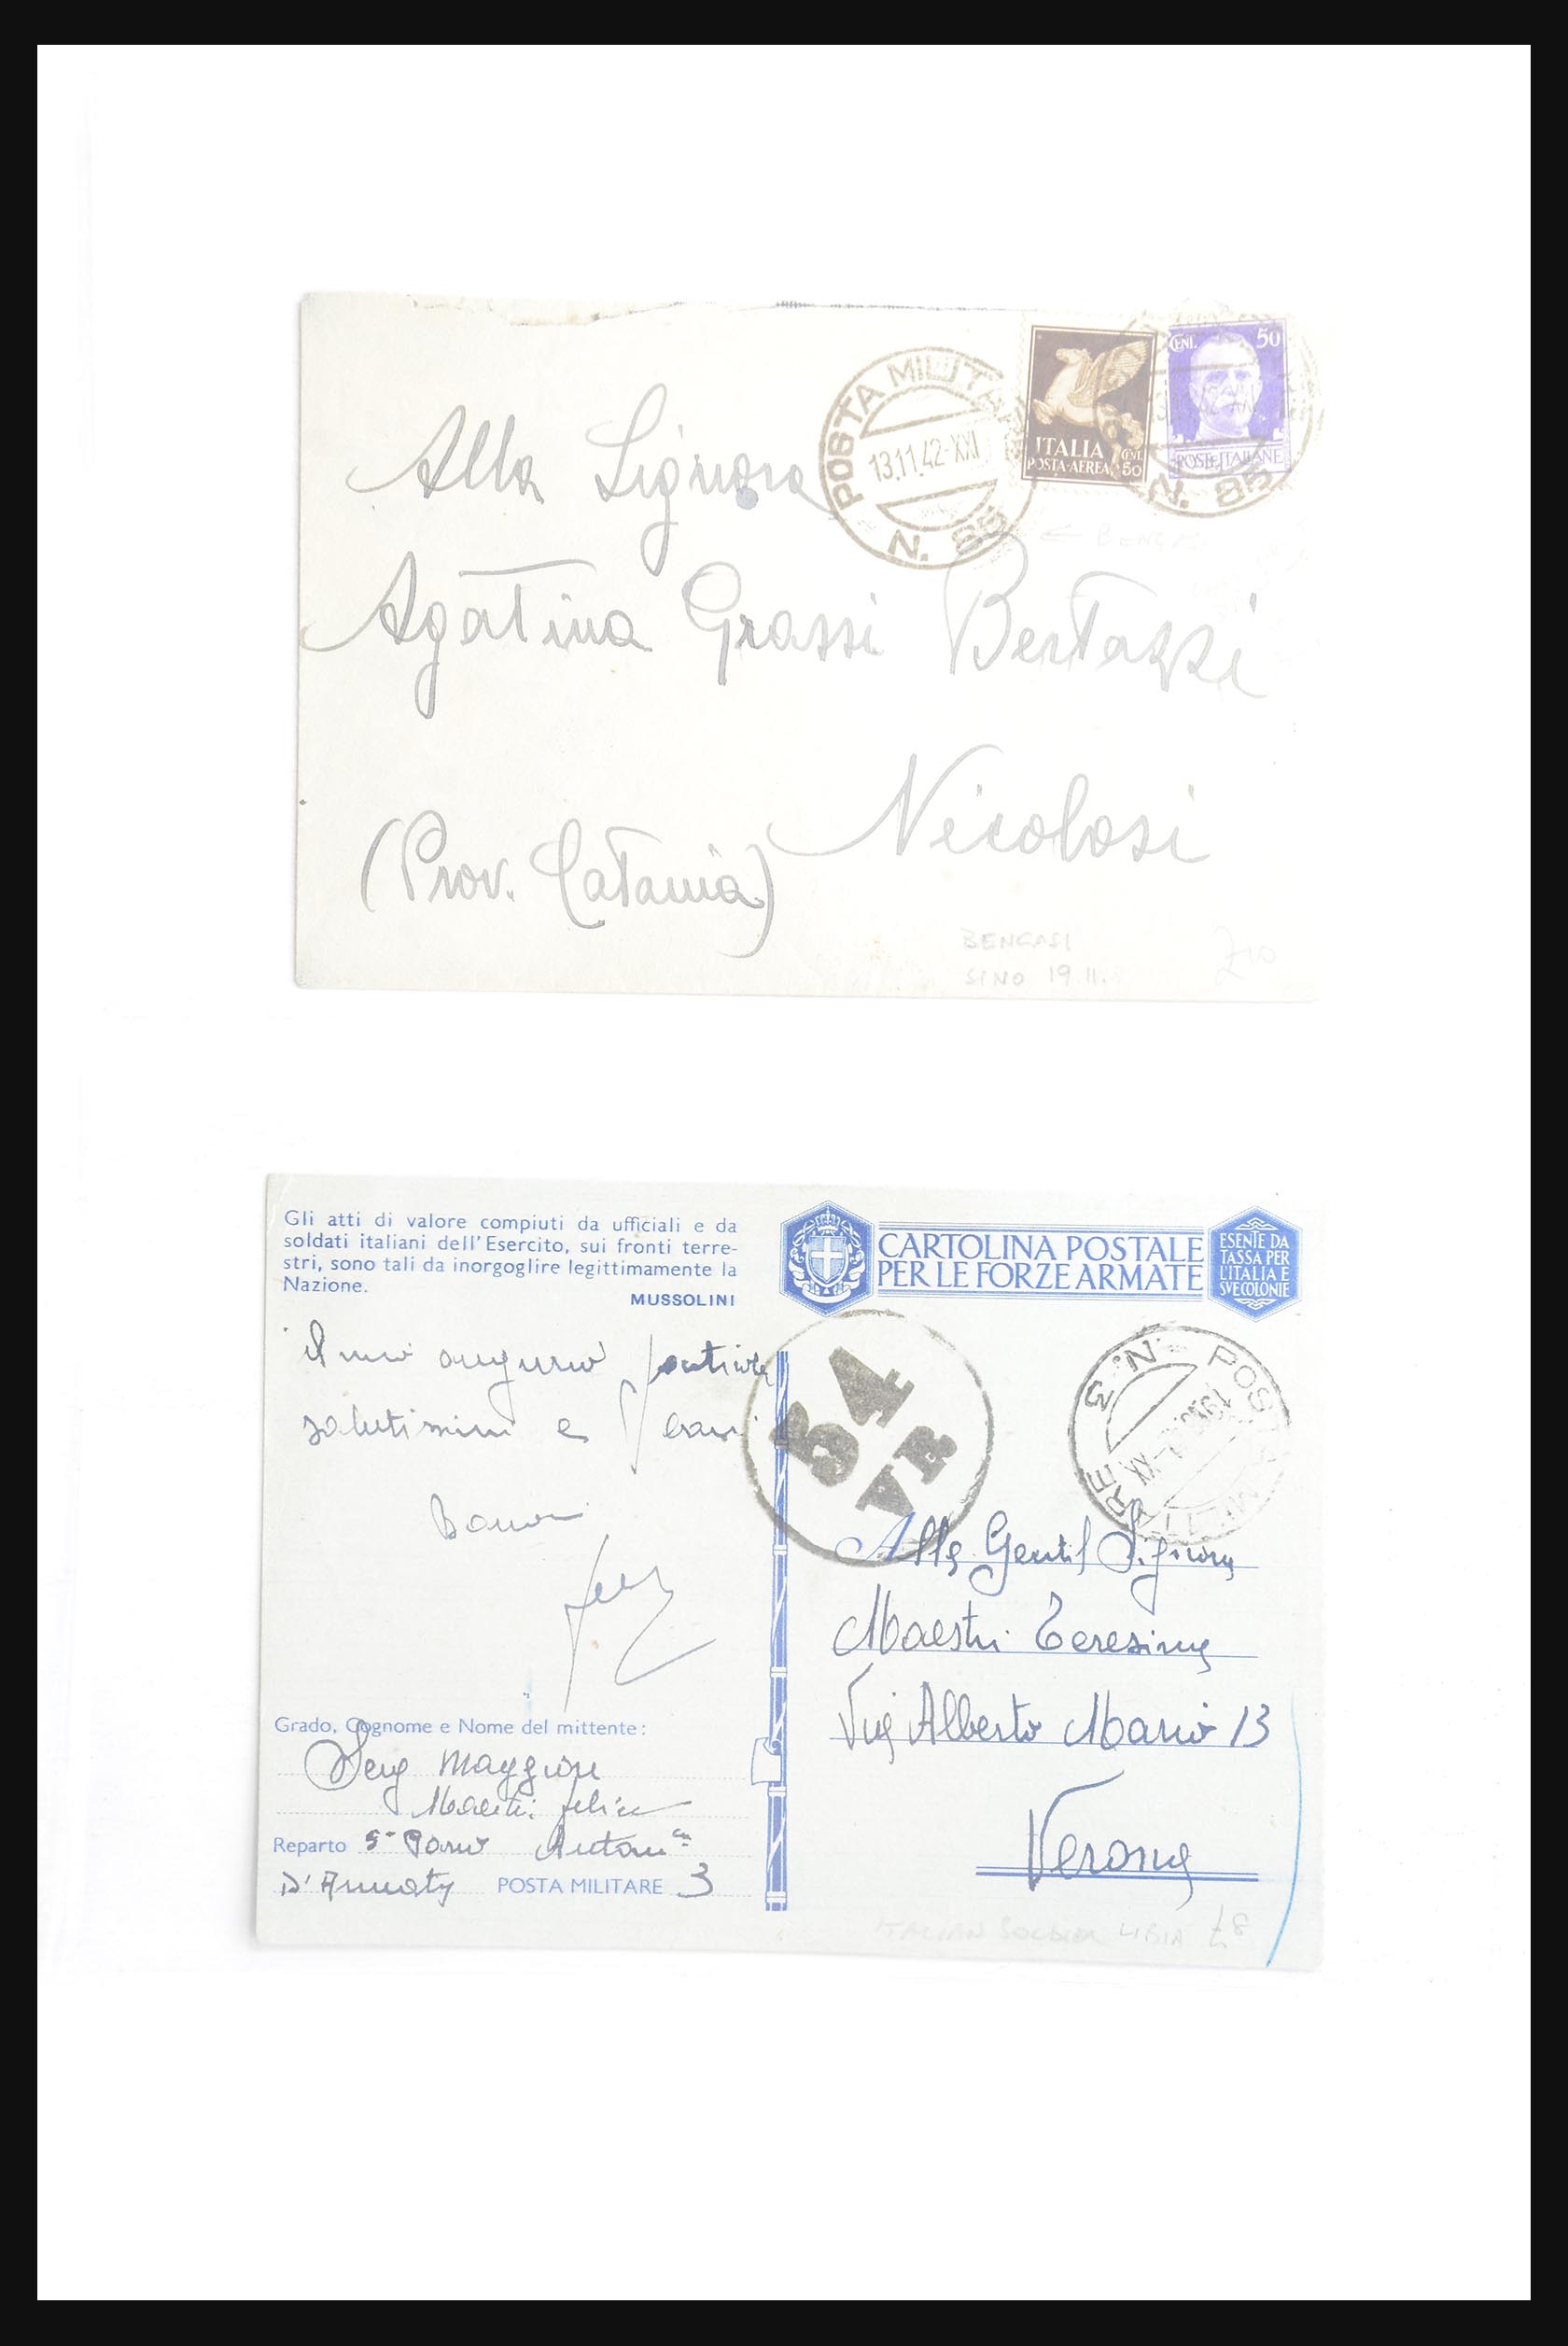 POSTA MILITARE
13.11.42-XXI
N. 85
ITALIA
POSTA-AEREA
CENT. 50
CENT. 50
POSTE ITALIANE
N. 85
Alla Signora
BENGASI
Agatina Grassi Bertazzi
Nicolosi
(Prov. Catania)
BENGASI
SINO 19.11.
£10
Gli atti di valore compiuti da ufficiali e da
soldati italiani dell'Esercito, sui fronti terre-
stri, sono tali da inorgoglire legittimamente la
Nazione.
MUSSOLINI
CARTOLINA POSTALE
PER LE FORZE ARMATE
ESENTE DA
TASSA PER
L'ITALIA E
SVE COLONIE
54
VR
POSTA MILITARE N. 3
Il mio augurio
salutissimi e cari
Alla Gentil Signora
Maestri Teresina
Via Alberto Mario 13
Verona
Grado, Cognome e Nome del mittente:
Serg Maggiore
Maestri Felice
Reparto 5°
D'Armata POSTA MILITARE 3
ITALIAN SOLDIER LIBIA £8